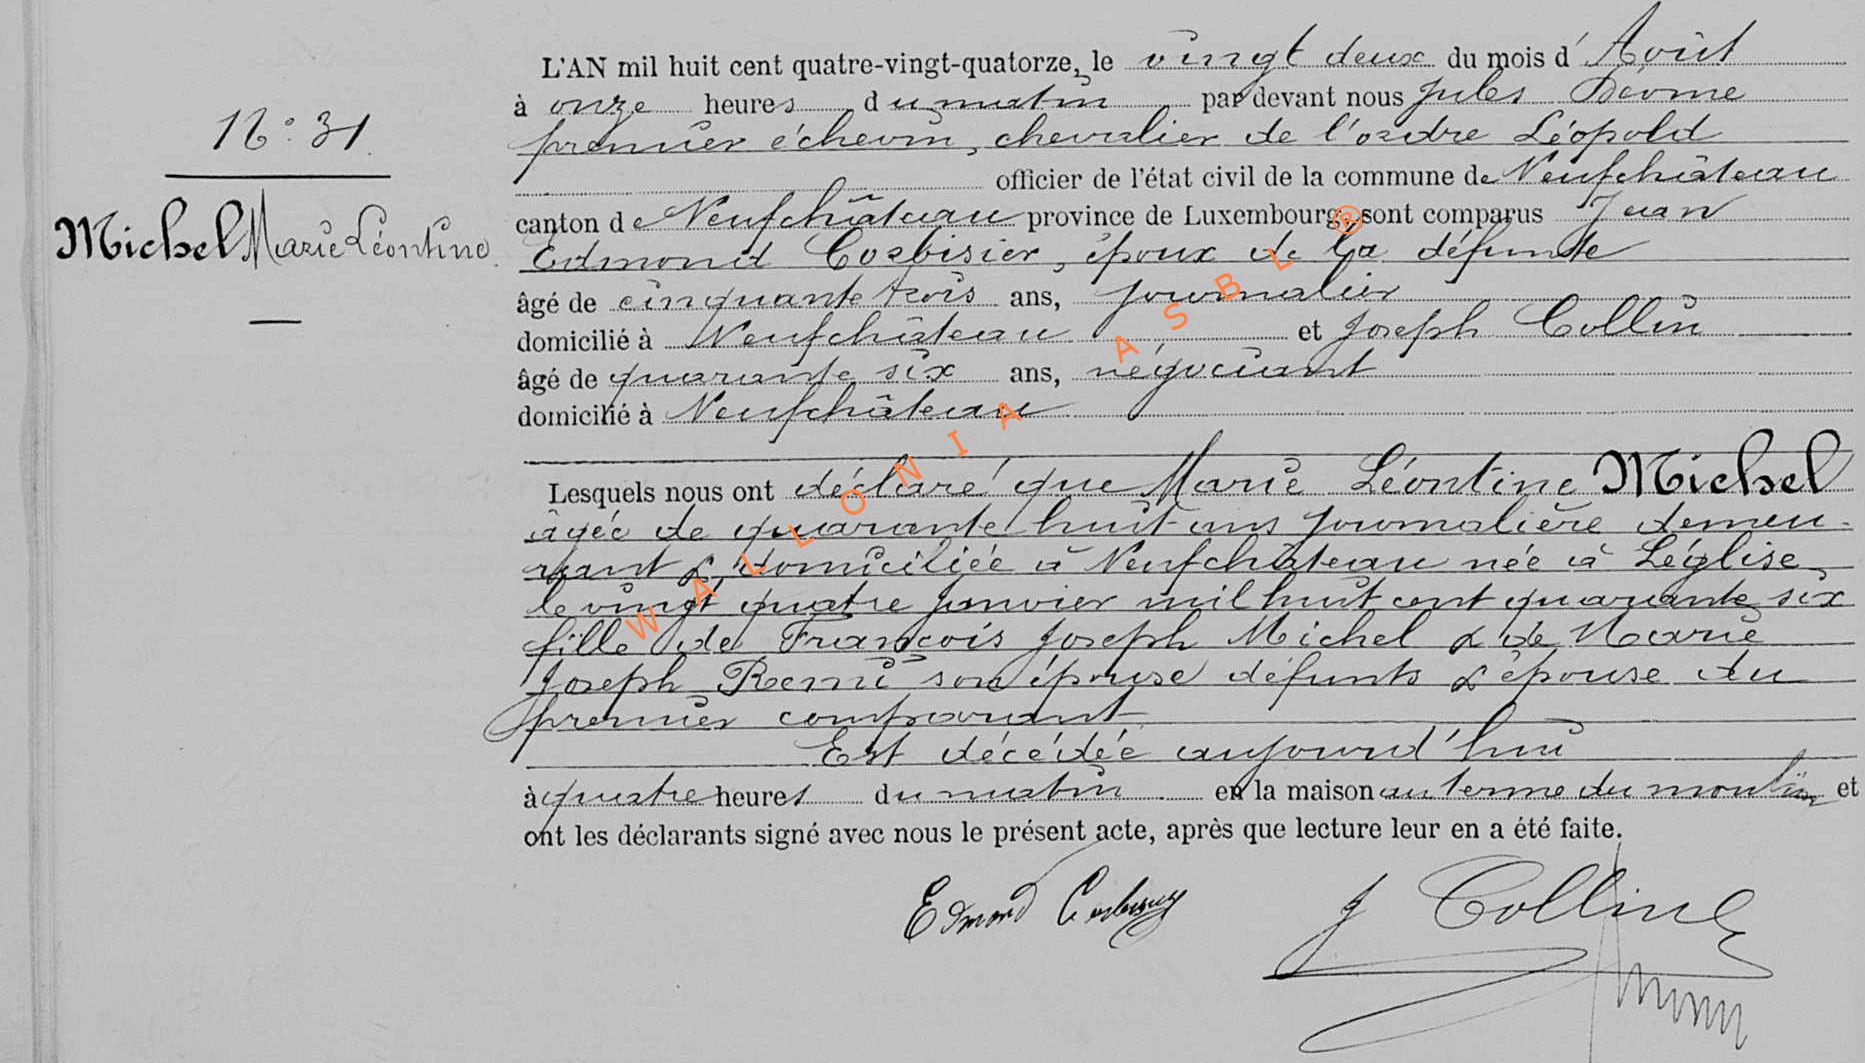 N° 31
Michel Marie Léontine
L'AN mil huit cent quatre-vingt-quatorze, le vingt deux du mois d' Août
à onze heures du matin par devant nous Jules
premier échevin, chevalier de l'ordre Léopold
officier de l'état civil de la commune de Neufchâteau
canton de Neufchâteau province de Luxembourg, sont comparus Jean
Edmond Corbisier, époux de la défunte
âgé de cinquante trois ans, journalier
domicilié à Neufchâteau et Joseph Collin
âgé de quarante six ans, négociant
domicilié à Neufchâteau
Lesquels nous ont déclaré que Marie Léontine Michel
âgée de quarante huit ans journalière demeu-
rant & domiciliée à Neufchâteau née à Léglise
le vingt quatre janvier mil huit cent quarante six
fille de François Joseph Michel & de Marie
Joseph Remi son épouse défunts & épouse du
premier comparant
Est décédée aujourd'hui
à quatre heures du matin en la maison au terme du moulin et
ont les déclarants signé avec nous le présent acte, après que lecture leur en a été faite.
Edmond Corbisier
J Collin
WALLONIA ASBL ®